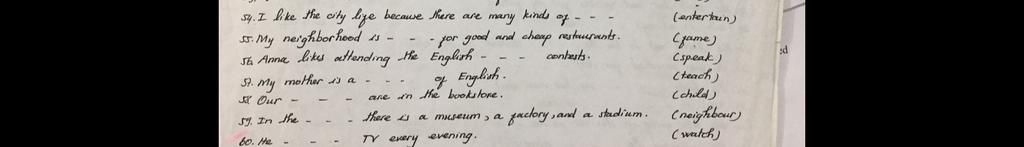 54. I like the city life because there are many kinds of - - - (entertain)
55. My neighborhood is - - - for good and cheap restaurants. (fame)
56. Anna likes attending the English - - - contests. (speak)
57. My mother is a - - - of English. (teach)
58. Our - - - are in the bookstore. (child)
59. In the - - - there is a museum, a factory, and a stadium. (neighbour)
60. He - - - TV every evening. (watch)
ed